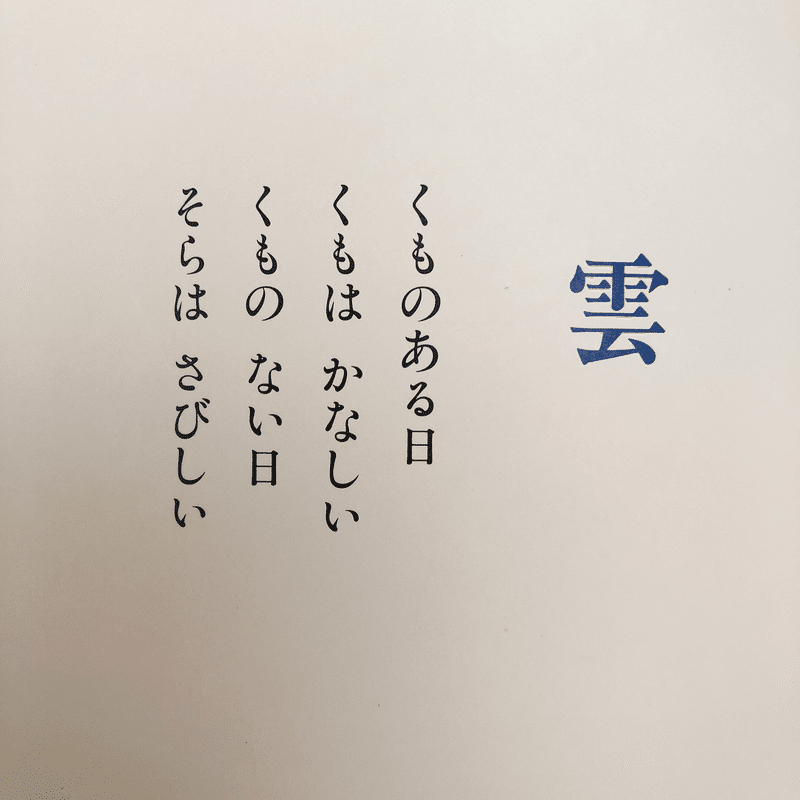 雲
くものある日
くもは　かなしい
くもの　ない日
そらは　さびしい